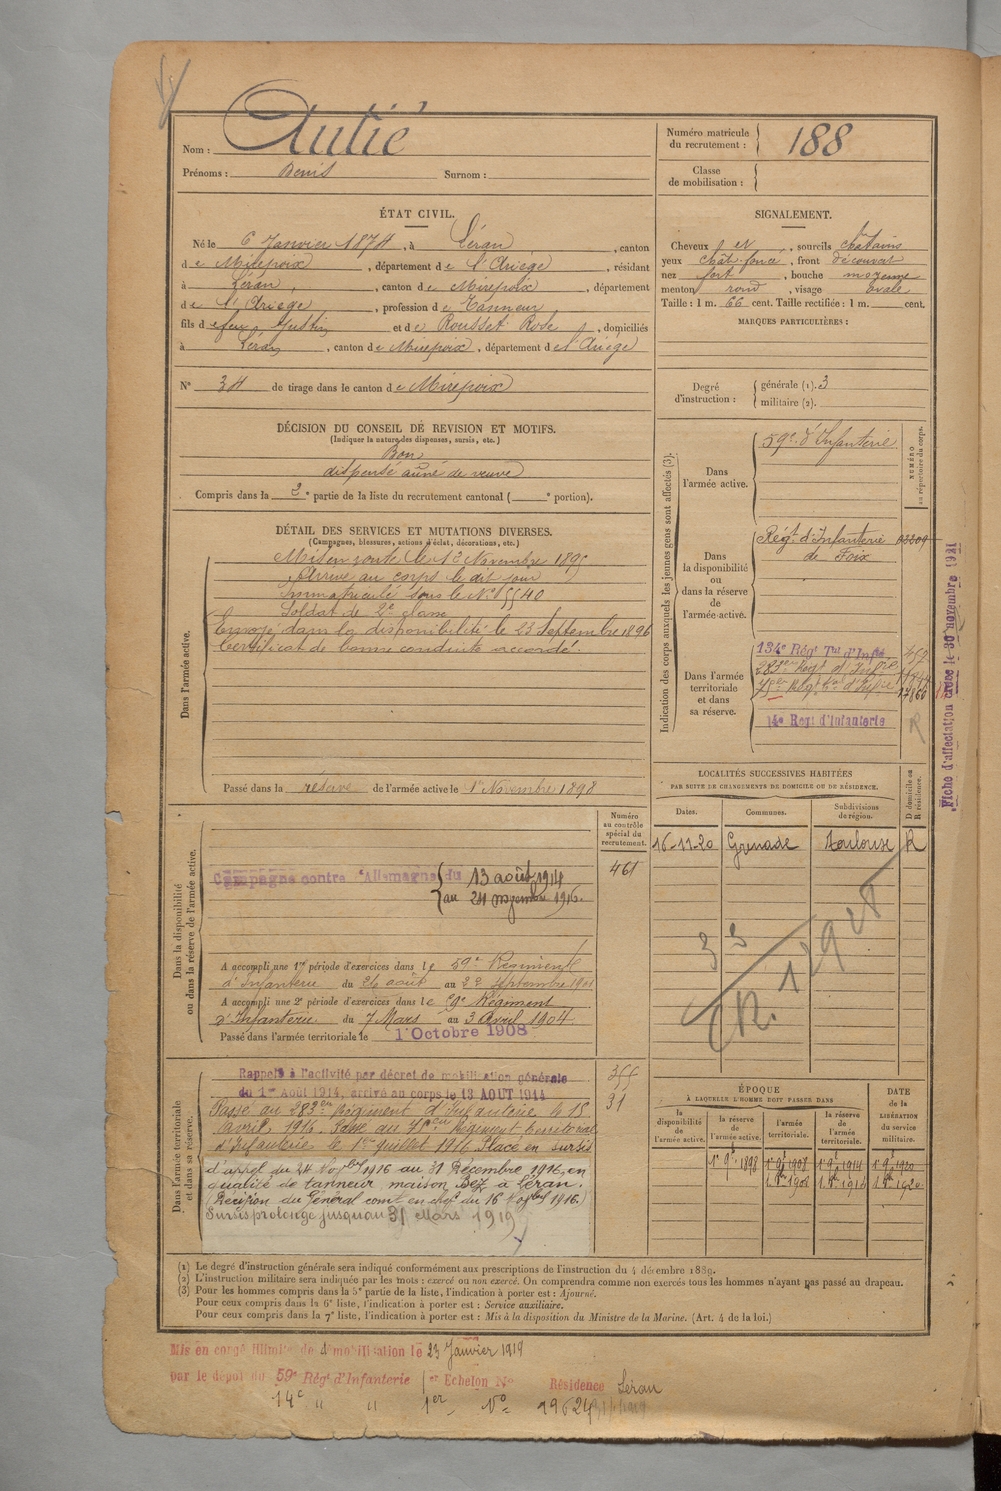 Nom : Autié
Prénoms : Denis Surnom :
Numéro matricule du recrutement : 188
Classe de mobilisation :
ÉTAT CIVIL.
Né le 6 Janvier 1874, à Léran, canton
de Mirepoix, département de l'Ariège, résidant
à Léran, canton de Mirepoix, département
de l'Ariège, profession de Tanneur
fils de feu Justin et de Rousset Rose, domiciliés
à Léran, canton de Mirepoix, département de l'Ariège
N° 34 de tirage dans le canton de Mirepoix
SIGNALEMENT.
Cheveux et, sourcils châtains
yeux chât. foncé, front découvert
nez fort, bouche moyenne
menton rond, visage ovale
Taille : 1 m. 66 cent. Taille rectifiée : 1 m. cent.
MARQUES PARTICULIÈRES :
Degré d'instruction : générale (1). 3
militaire (2).
DÉCISION DU CONSEIL DE REVISION ET MOTIFS.
(Indiquer la nature des dispenses, sursis, etc.)
Bon
dispensé aîné de veuve
Compris dans la 2e partie de la liste du recrutement cantonal ( e portion).
DÉTAIL DES SERVICES ET MUTATIONS DIVERSES.
(Campagnes, blessures, actions d'éclat, décorations, etc.)
Dans l'armée active.
Mis en route le 13 Novembre 1895
Arrivé au corps le dit jour
Immatriculé sous le N° 5540
Soldat de 2e classe
Envoyé dans la disponibilité le 23 Septembre 1896
Certificat de bonne conduite accordé.
Passé dans la réserve de l'armée active le 1er Novembre 1898
Indication des corps auxquels les jeunes gens sont affectés (3).
NUMÉRO au répertoire du corps.
Dans l'armée active.
59e d'Infanterie
Dans la disponibilité ou dans la réserve de l'armée active.
Régt d'Infanterie
de Foix
Dans l'armée territoriale et dans sa réserve.
134e Régt Tal d'Infie
283e Régt d'Infie
14e Regt d'Infanterie
R
Fiche d'affectation créée le 30 novembre 1921
Numéro au contrôle spécial du recrutement.
Dans la disponibilité ou dans la réserve de l'armée active.
Campagne contre l'Allemagne du 13 août 1914
au 24 novembre 1916.
461
A accompli une 1re période d'exercices dans le 59e Régiment
d'Infanterie du 26 août au 22 septembre 1901
A accompli une 2e période d'exercices dans le 59e Régiment
d'Infanterie du 7 Mars au 3 Avril 1904
Passé dans l'armée territoriale le 1 Octobre 1908
LOCALITÉS SUCCESSIVES HABITÉES
PAR SUITE DE CHANGEMENTS DE DOMICILE OU DE RÉSIDENCE.
Dates. Communes. Subdivisions de région. D domicile ou R résidence.
16-11-20 Grenade Toulouse R
Dans l'armée territoriale et dans sa réserve.
Rappelé à l'activité par décret de mobilisation générale
du 1er Août 1914, arrivé au corps le 13 AOUT 1914
355
31
Passé au 283e Régiment d'Infanterie le 15
avril 1916. Passé au Régiment territorial
d'Infanterie le 1er Juillet 1916 Placé en sursis
d'appel du 24 Novbre 1916 au 31 Décembre 1916, en
qualité de tanneur maison Bez à Léran.
(Décision du Général comt en chef du 16 Novbre 1916.)
Sursis prolongé jusqu'au 31 Mars 1919
ÉPOQUE
A LAQUELLE L'HOMME DOIT PASSER DANS
la disponibilité de l'armée active.
la réserve de l'armée active.
l'armée territoriale.
la réserve de l'armée territoriale.
DATE de la LIBÉRATION du service militaire.
1er 9bre 1898 1er 9bre 1908 1er 9bre 1914 1er 9bre 1920
(1) Le degré d'instruction générale sera indiqué conformément aux prescriptions de l'instruction du 4 décembre 1889.
(2) L'instruction militaire sera indiquée par les mots : exercé ou non exercé. On comprendra comme non exercés tous les hommes n'ayant pas passé au drapeau.
(3) Pour les hommes compris dans la 5e partie de la liste, l'indication à porter est : Ajourné.
Pour ceux compris dans la 6e liste, l'indication à porter est : Service auxiliaire.
Pour ceux compris dans la 7e liste, l'indication à porter est : Mis à la disposition du Ministre de la Marine. (Art. 4 de la loi.)
Mis en congé illimité de démobilisation le 23 Janvier 1919
par le dépôt du 59e Régt d'Infanterie 1er Echelon N° Résidence Léran
14e " " 1er N°